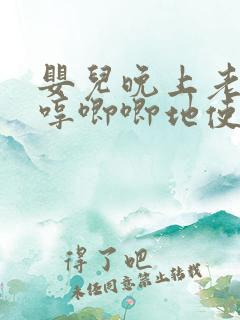 嬰兒晚上老
哼唧唧地使
得了吧
未经同意禁止转载